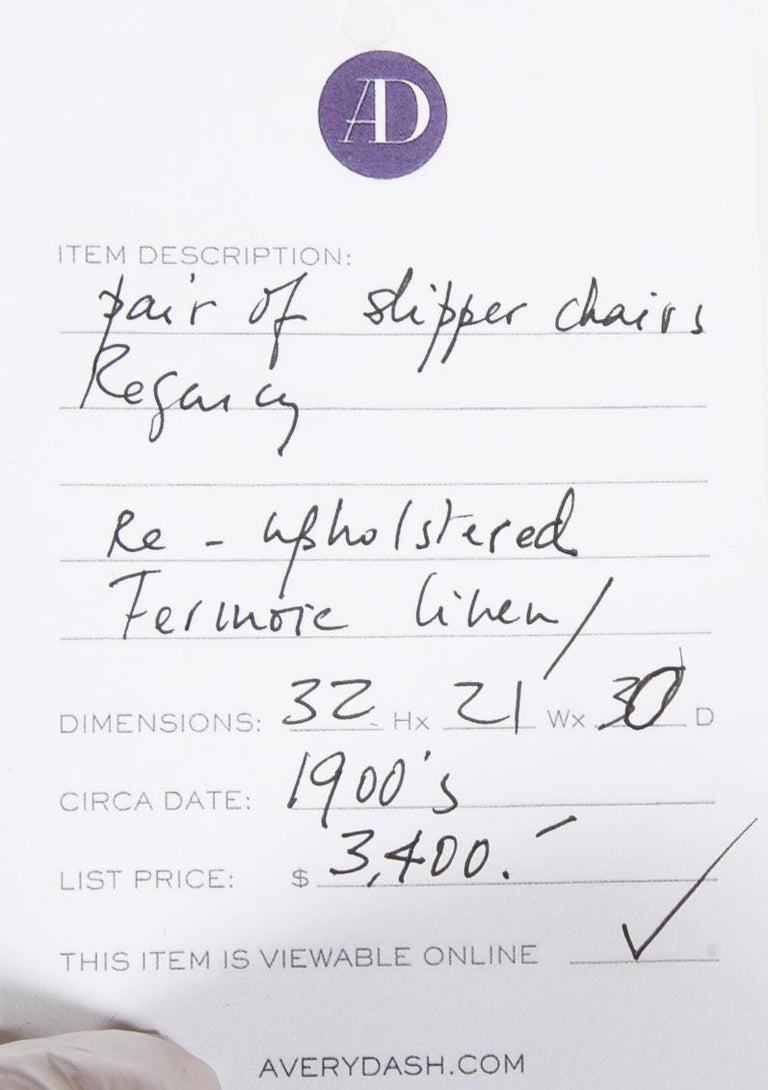 AD
ITEM DESCRIPTION:
pair of slipper chairs
Regency
Re-upholstered
Fermoie linen/
DIMENSIONS: 32 Hx 21 Wx 30 D
CIRCA DATE: 1900's
LIST PRICE: $ 3,400.-
THIS ITEM IS VIEWABLE ONLINE ✓
AVERYDASH.COM